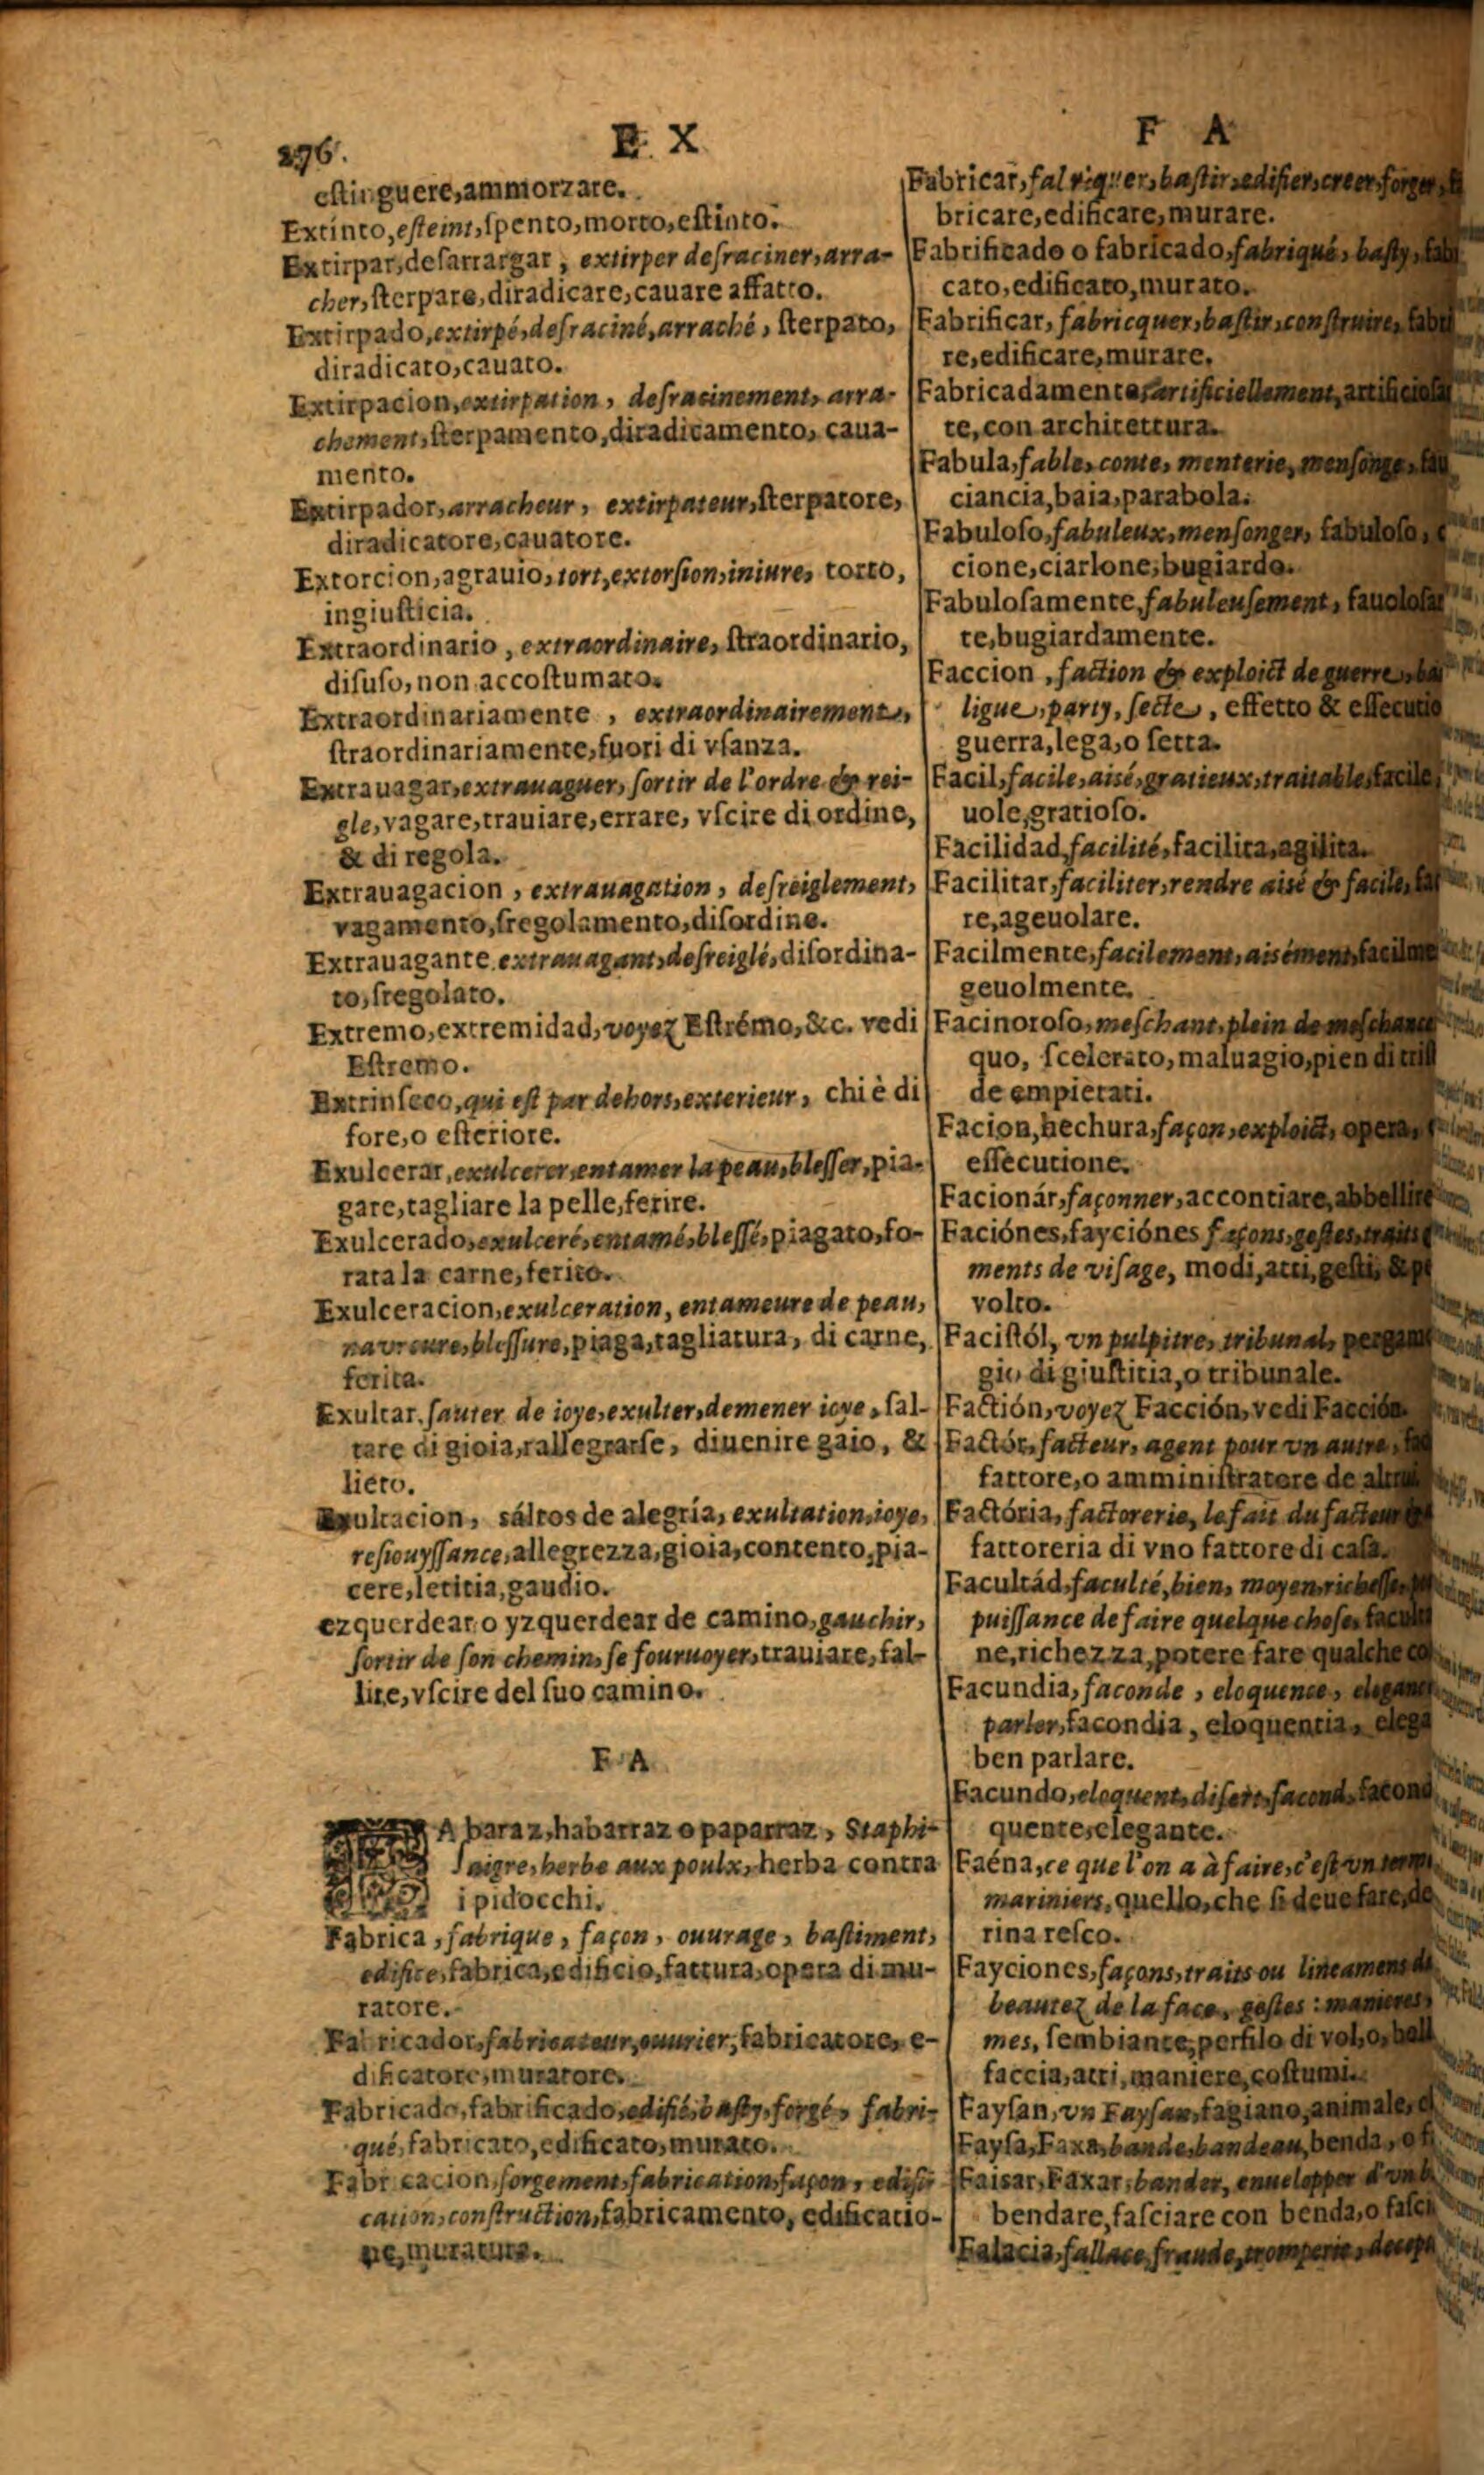 296.
E X
estinguere,ammorzare.
Extinto,esteint,spento,morto,estinto.
Extirpar,desarrargar, extirper desraciner,arra-
cher,sterpare,diradicare,cauare affatto.
Extirpado,extirpé,desraciné,arraché, sterpato,
diradicato,cauato.
Extirpacion,extirpation, desracinement, arra-
chement,sterpamento,diradicamento, caua-
mento.
Extirpador,arracheur, extirpateur,sterpatore,
diradicatore,cauatore.
Extorcion,agrauio,tort,extorsion,iniure, torto,
ingiusticia.
Extraordinario, extraordinaire, straordinario,
disuso,non accostumato.
Extraordinariamente, extraordinairement,
straordinariamente,fuori di vsanza.
Extrauagar,extrauaguer, sortir de l'ordre & rei-
gle,vagare,trauiare,errare, vscire di ordine,
& di regola.
Extrauagacion, extrauagation, desreiglement,
vagamento,sregolamento,disordine.
Extrauagante extrauagant,desreiglé,disordina-
to,sregolato.
Extremo,extremidad,voyez Estrémo,&c. vedi
Estremo.
Extrinseco,qui est par dehors,exterieur, chi è di
fore,o esteriore.
Exulcerar,exulcerer,entamer la peau,blesser,pia-
gare,tagliare la pelle,ferire.
Exulcerado,exulceré,entamé,blessé,piagato,fo-
rata la carne,ferito.
Exulceracion,exulceration, entameure de peau,
navreure,blessure,piaga,tagliatura, di carne,
ferita.
Exultar,sauter de ioye,exulter,demener ioye, sal-
tare di gioia,rallegrarse, diuenire gaio, &
lieto.
Exultacion, sáltos de alegría, exultation,ioye,
resiouyssance,allegrezza,gioia,contento,pia-
cere,letitia,gaudio.
ezquerdear o yzquerdear de camino,gauchir,
sortir de son chemin,se fouruoyer,trauiare,fal-
lire,vscire del suo camino.
F A
FAbaraz,habarraz o paparraz, Staphi-
saigre,herbe aux poulx,herba contra
i pidocchi.
Fabrica,fabrique, façon, ouurage, bastiment,
edifice,fabrica,edificio,fattura,opera di mu-
ratore.
Fabricador,fabricateur,ouurier,fabricatore, e-
dificatore,muratore.
Fabricado,fabrificado,edifié,basty,forgé, fabri-
qué,fabricato,edificato,murato.
Fabricacion,forgement,fabrication,façon, edifi-
cation,construction,fabricamento, edificatio-
ne,muratura.
F A
Fabricar,fabriquer,bastir,edifier,creer,forger,
bricare,edificare,murare.
Fabrificado o fabricado,fabriqué, basty,
cato,edificato,murato.
Fabrificar, fabricquer,bastir,construire,
re,edificare,murare.
Fabricadamente,artificiellement,
te,con architettura.
Fabula,fable, conte, menterie, mensonge,
ciancia,baia,parabola.
Fabuloso,fabuleux,mensonger, fabuloso,
cione,ciarlone,bugiardo.
Fabulosamente,fabuleusement,
te,bugiardamente.
Faccion,faction & exploict de guerre,
ligue,party,secte, effetto &
guerra,lega,o setta.
Facil,facile,aisé,gratieux,traitable,facile,
uole,gratioso.
Facilidad,facilité,facilita,agilita.
Facilitar,faciliter,rendre aisé & facile,
re,ageuolare.
Facilmente,facilement,aisément,
geuolmente.
Facinoroso,meschant,plein de
quo, scelerato,maluagio,pien di
de empietati.
Facion,hechura,façon,exploict, opera,
essecutione.
Facionár,façonner,accontiare,abbellire
Faciónes,fayciónes façons,gestes,traits
ments de visage, modi,atti,gesti,
volto.
Facistól, vn pulpitre, tribunal,
gio di giustitia,o tribunale.
Factión,voyez Facción,vedi Facción.
Factór,facteur, agent pour vn autre,
fattore,o amministratore de
Factória, factorerie, le fait du facteur
fattoreria di vno fattore di casa.
Facultád,faculté,bien, moyen,richesse,
puissance de faire quelque chose,
ne,richezza,potere fare qualche
Facundia,faconde, eloquence,
parler,facondia, eloquentia,
ben parlare.
Facundo,eloquent,disert,facond,
quente,elegante.
Faéna,ce que l'on a à faire,c'est vn
mariniers,quello,che si deue fare,
rina resco.
Fayciones,façons,traits ou lineamens
beautez de la face, gestes: manieres,
mes, sembiante,perfilo di volto,
faccia,atti,maniere,costumi.
Faysan,vn Faysan,fagiano,animale,
Faysa,Faxa,bande,bandeau,benda,
Faisar,Faxar,bander, enuelopper
bendare,fasciare con benda,o
Falacia,fallace,fraude,tromperie,